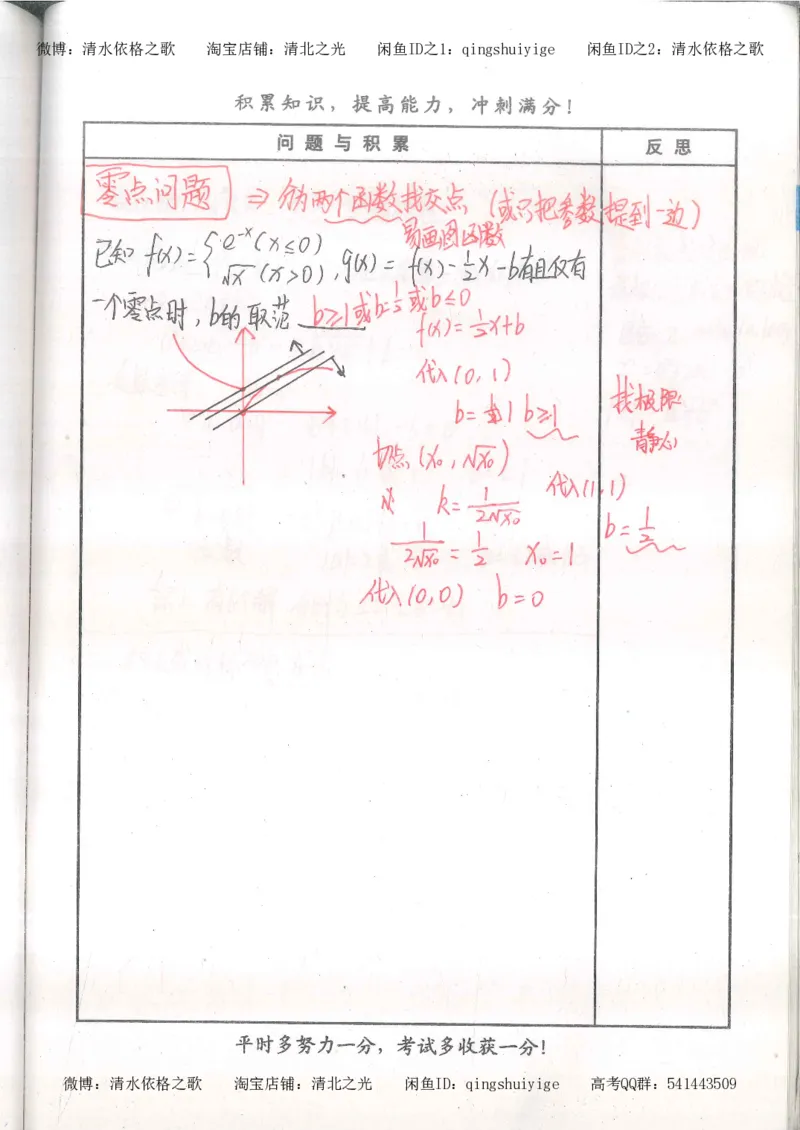 微博：清水依格之歌 淘宝店铺：清北之光 闲鱼ID之1：qingshuiyige 闲鱼ID之2：清水依格之歌
积累知识，提高能力，冲刺满分！
问题与积累 反思
零点问题 ⇒ 分为两个函数找交点（或只把参数提到一边）
易画图函数
已知 f(x)={e^{-x}(x≤0) √x(x>0), g(x)=f(x)-½x-b有且仅有
一个零点时，b的取范 b≥1或b=½或b≤0
f(x)=½x+b
代入(0,1)
b=1 b≥1
找极限
静心
切点(x₀,√x₀)
代入(1,1)
k=1/(2√x₀)
b=½
1/(2√x₀)=½ x₀=1
代入(0,0) b=0
平时多努力一分，考试多收获一分！
微博：清水依格之歌 淘宝店铺：清北之光 闲鱼ID：qingshuiyige 高考QQ群：541443509